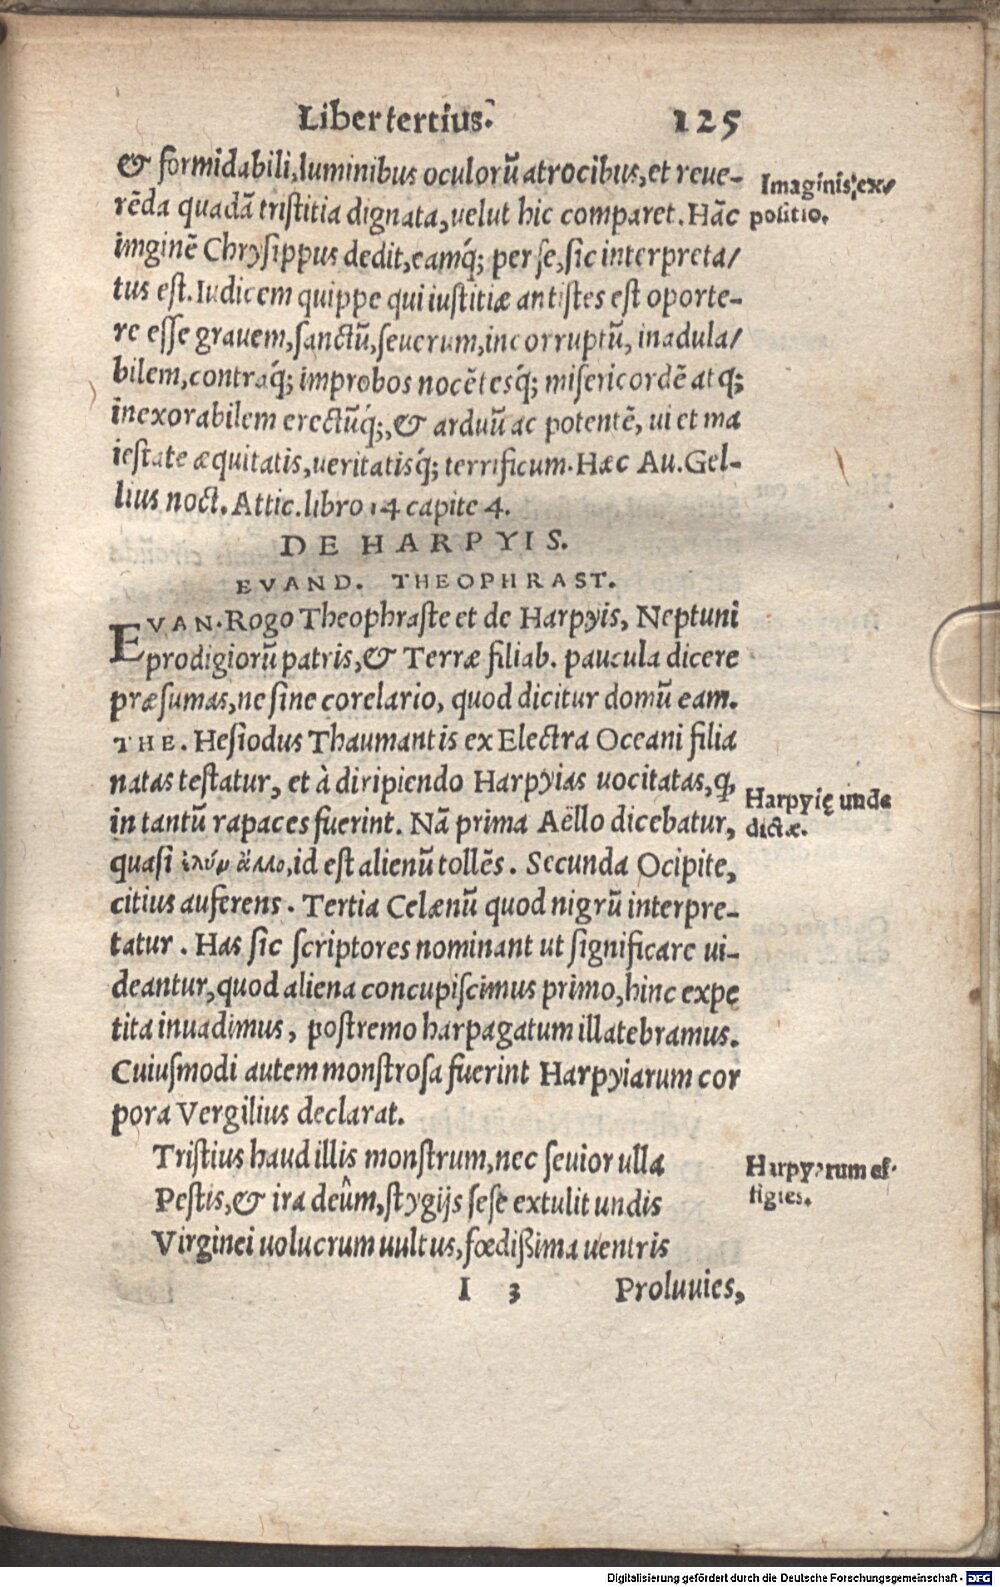 Liber tertius. 125
& formidabili, luminibus oculorũ atrocibus, et reue-
rẽda quadã tristitia dignata, uelut hic comparet. Hãc
imginẽ Chrysippus dedit, eamq́; per se, sic interpreta/
tus est. Iudicem quippe qui iustitiæ antistes est oporte-
re esse grauem, sanctũ, seuerum, incorruptũ, inadula/
bilem, contraq́; improbos nocẽtesq́; misericordẽ atq;
inexorabilem erectũq́;, & arduũ ac potentẽ, ui et ma
iestate æquitatis, ueritatisq́; terrificum. Hæc Au. Gel-
lius noct. Attic. libro 14 capite 4.
Imaginis ex/
positio.
DE HARPYIS.
EVAND. THEOPHRAST.
EVAN. Rogo Theophraste et de Harpyis, Neptuni
prodigiorũ patris, & Terræ filiab. paucula dicere
præsumas, ne sine corelario, quod dicitur domũ eam.
THE. Hesiodus Thaumantis ex Electra Oceani filia
natas testatur, et à diripiendo Harpyias uocitatas, q,
in tantũ rapaces fuerint. Nã prima Aëllo dicebatur,
quasi id est alienũ tollẽs. Secunda Ocipite,
citius auferens. Tertia Celænũ quod nigrũ interpre-
tatur. Has sic scriptores nominant ut significare ui-
deantur, quod aliena concupiscimus primo, hinc expe
tita inuadimus, postremo harpagatum illatebramus.
Cuiusmodi autem monstrosa fuerint Harpyiarum cor
pora Vergilius declarat.
Harpyię unde
dictæ.
Tristius haud illis monstrum, nec seuior ulla
Pestis, & ira deûm, stygijs sese extulit undis
Virginei uolucrum uultus, fœdißima uentris
Harpyarum ef-
figies.
I 3 Proluuies,
Digitalisierung gefördert durch die Deutsche Forschungsgemeinschaft - DFG